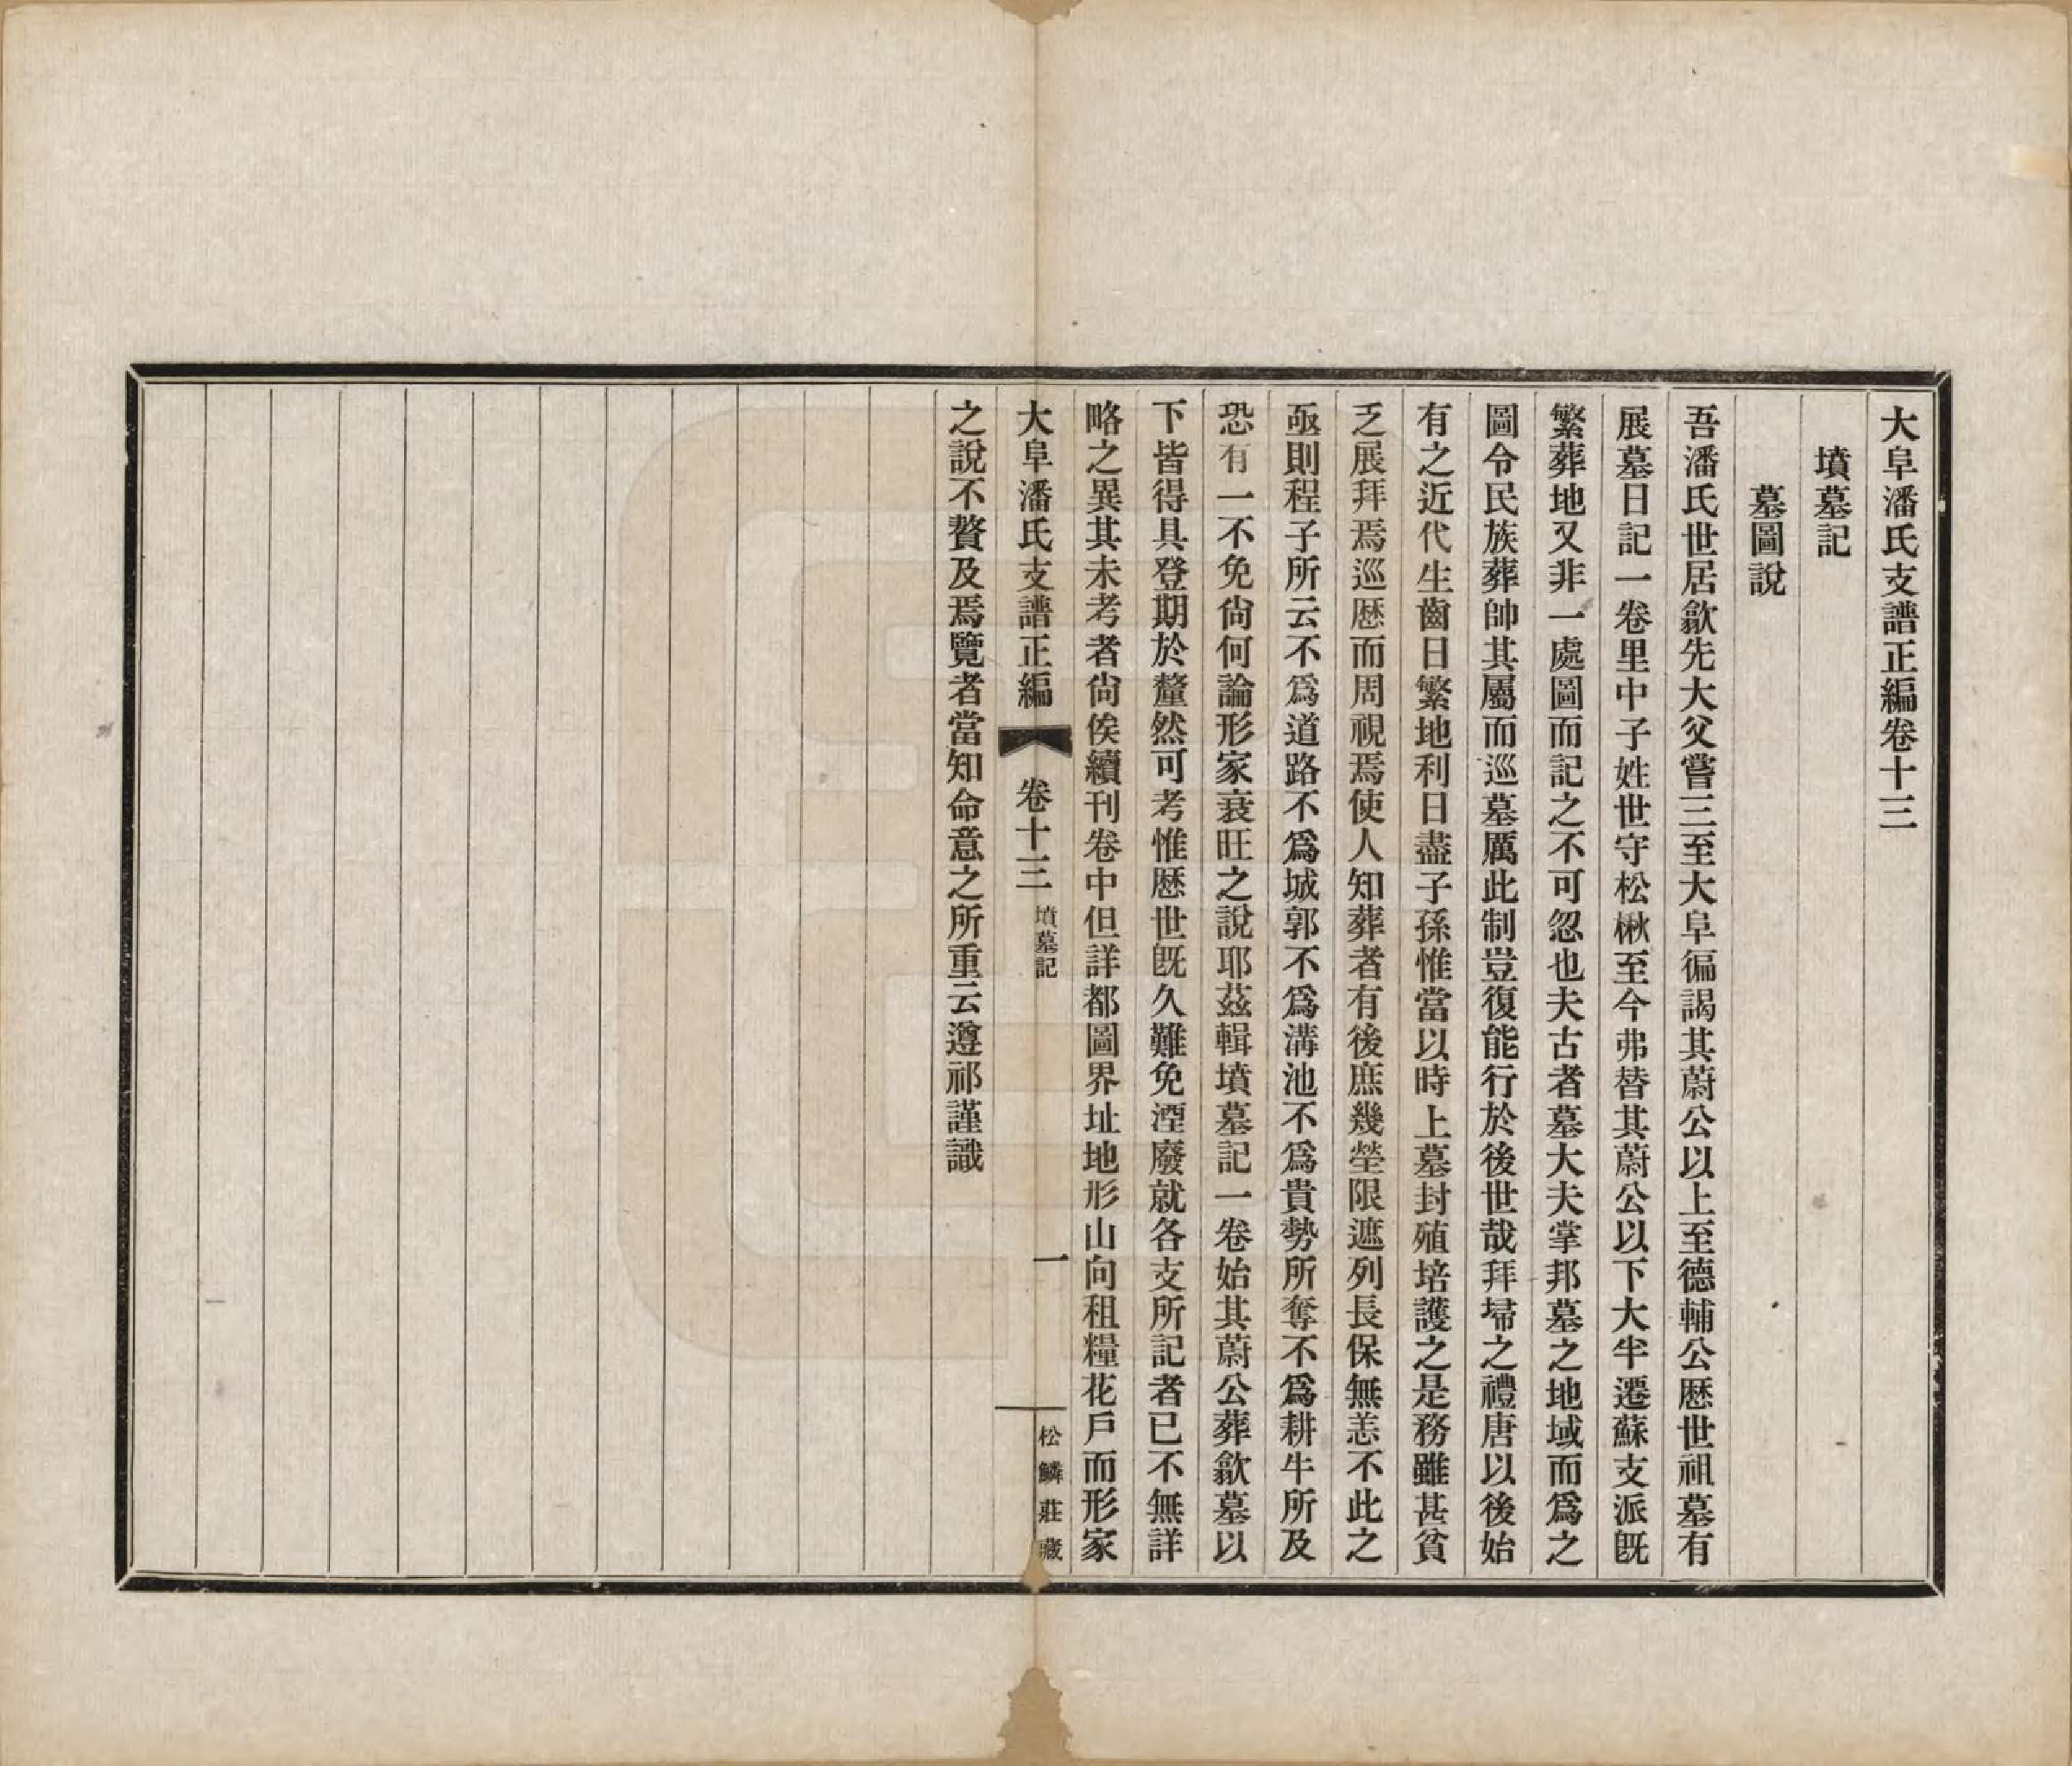 大阜潘氏支譜正編卷十三
墳墓記
墓圖說
吾潘氏世居歙先大父嘗三至大阜徧謁其蔚公以上至德輔公歷世祖墓有
展墓日記一卷里中子姓世守松楸至今弗替其蔚公以下大半遷蘇支派旣
繁葬地又非一處圖而記之不可忽也夫古者墓大夫掌邦墓之地域而爲之
圖令民族葬帥其屬而巡墓厲此制豈復能行於後世哉拜埽之禮唐以後始
有之近代生齒日繁地利日盡子孫惟當以時上墓封殖培護之是務雖甚貧
乏展拜焉巡歷而周視焉使人知葬者有後庶幾塋限遮列長保無恙不此之
亟則程子所云不爲道路不爲城郭不爲溝池不爲貴勢所奪不爲耕牛所及
恐有一不免尙何論形家衰旺之說耶茲輯墳墓記一卷始其蔚公葬歙墓以
下皆得具登期於釐然可考惟歷世旣久難免湮廢就各支所記者已不無詳
略之異其未考者尙俟續刊卷中但詳都圖界址地形山向租糧花戶而形家
大阜潘氏支譜正編 卷十三 墳墓記 一 松鱗莊藏
之說不贅及焉覽者當知命意之所重云遵祁謹識